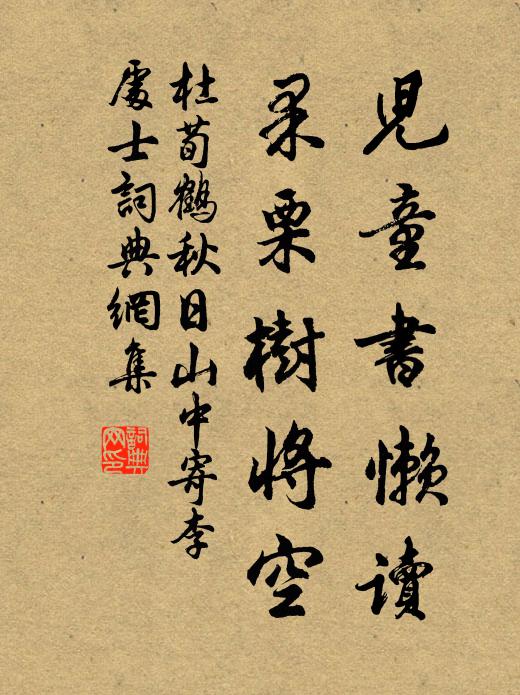 兒童書懶讀
果栗樹將空
杜荀鶴秋日山中寄李
處士詞典網集
詞典
网印